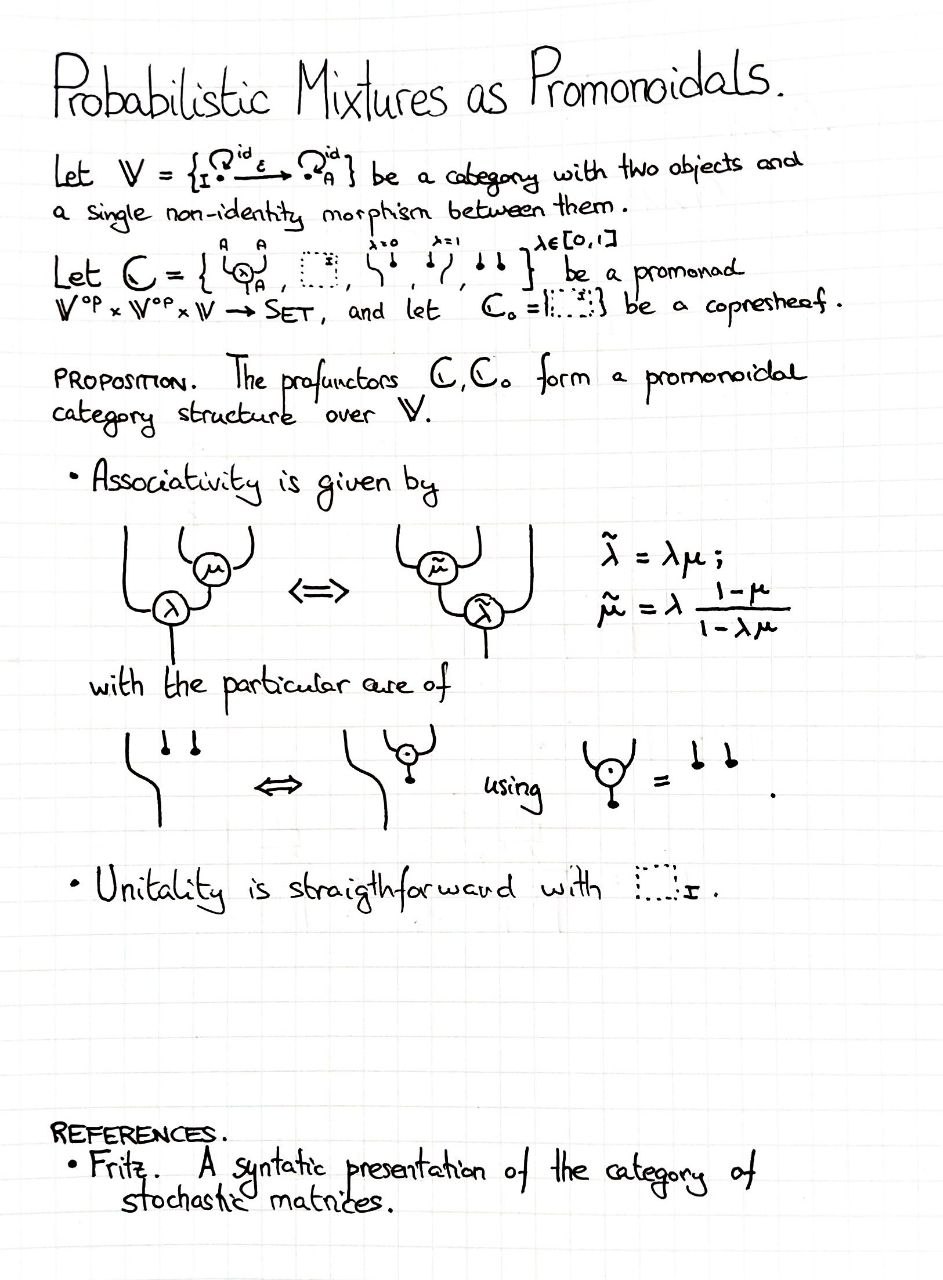 Probabilistic Mixtures as Promonoidals.
Let 𝕍 = { I id ε id A } be a category with two objects and
a single non-identity morphism between them.
Let ℂ = { A A λ A , I , λ=0 , λ=1 , } λ∈[0,1] be a promonad
𝕍ᵒᵖ × 𝕍ᵒᵖ × 𝕍 → SET, and let ℂ₀ = { I } be a copresheaf.
PROPOSITION. The profunctors ℂ, ℂ₀ form a promonoidal
category structure over 𝕍.
• Associativity is given by
μ λ ⇔ μ̃ λ̃ λ̃ = λμ ;
μ̃ = λ (1-μ)/(1-λμ)
with the particular case of
⇔ using = .
• Unitality is straigthforward with I .
REFERENCES.
• Fritz. A syntatic presentation of the category of
stochastic matrices.